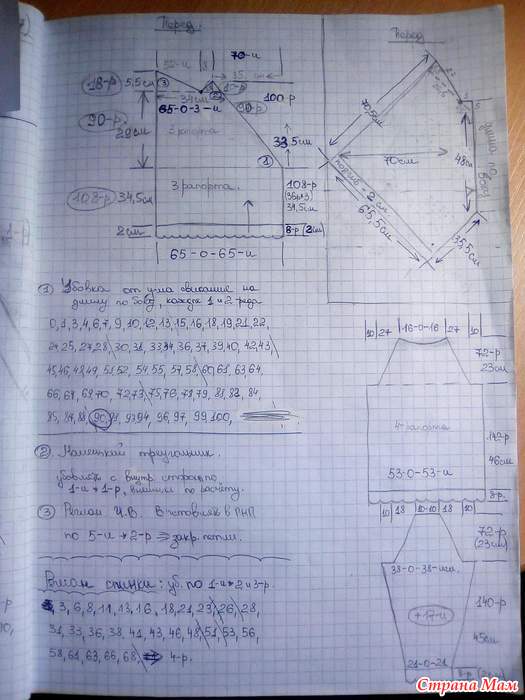 Перед.
Перед
70-и
18-р 5,5см
34см
35 см
65-0-3-и
100-р
90-р
29см
90-р.
3 рапорта
33,5см
1
108-р 34,5см
3 рапорта.
108-р
(36р×3)
34,5см
2см
8-р (2см)
65-0-65-и
70,5см
70см
48см
подгиб = 2 см
65,5см
35,5см
длина по боку
1 Убавка от у-ла свисание на
длину по боку, каждые 1 и 2 ряда
0,1,3,4,6,7,9,10,12,13,15,16,18,19,21,22,
24,25,27,28, 30,31,33,34,36,37,39,40,42,43,
45,46,48,49,51,52, 54,55,57,58,60,61,63,64,
66,67,69,70, 72,73,75,76,78,79, 81,82,84,
85,87,88,90,91,93,94,96,97,99,100,
2 Маленький треугольник.
убавлять с внутр. стороны,
1-и × 1-р,
3 Реглан И.В. Вставляем в ПНП
по 5-и × 2-р ⇒ закр. петли.
Реглан спинки: уб. по 1-и × 2 и 3-р.
3,6,8,11,13,16,18,21,23,26,28,
31,33,36,38,41,43,46,48,51,53,56,
58,61,63,66,68, 4-р.
10 27 -16-0-16 27 10
72-р
23см
4-рапорта
142-р
46см
53-0-53-и
8-р.
10 18 10-10 18 10
72-р
(23см)
38-0-38-и
+17-и
140-р
45см
21-0-21
Страна Мам